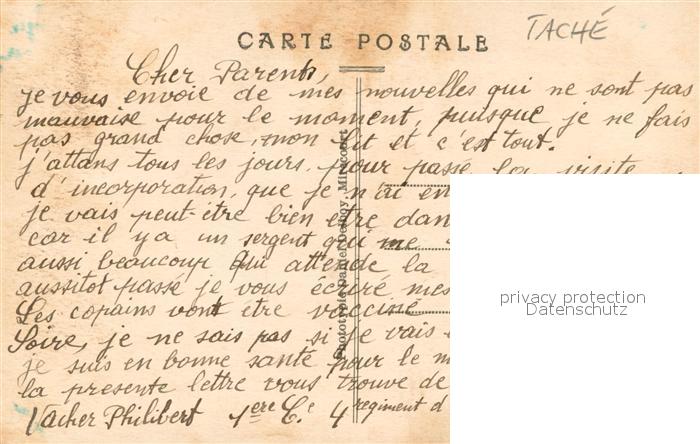 TACHÉ
CARTE POSTALE
Cher Parents,
je vous envoie de mes nouvelles qui ne sont pas
mauvaise pour le moment, puisque je ne fais
pas grand chose, mon lit et c'est tout.
j'attans tous les jours, pour passé la visite
d'incorporation, que je n'ai en
je vais peut-être bien être dan
car il y a un sergent qui me
aussi beaucoup qui attende la
aussitot passé je vous écriré mes
Les copains vont être vacciné
Soire, je ne sais pas si je vais
je suis en bonne santé pour le m
la presente lettre vous trouve de
Vacher Philibert 1ere C.e 4 regiment d
Phototypie Daniel Delboy, Mirecourt
privacy protection
Datenschutz